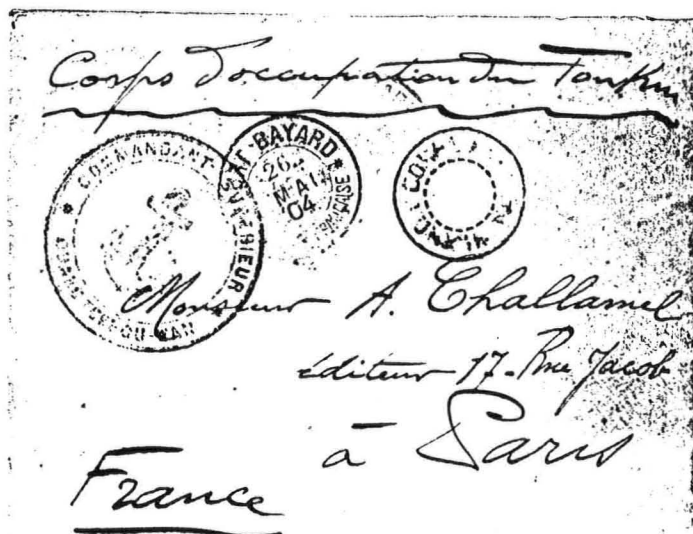 Corps d'occupation du Tonkin
COMMANDANT SUPÉRIEUR
BAYARD
26 MAI 04
Monsieur A. Challamel
éditeur 17. Rue Jacob
à Paris
France